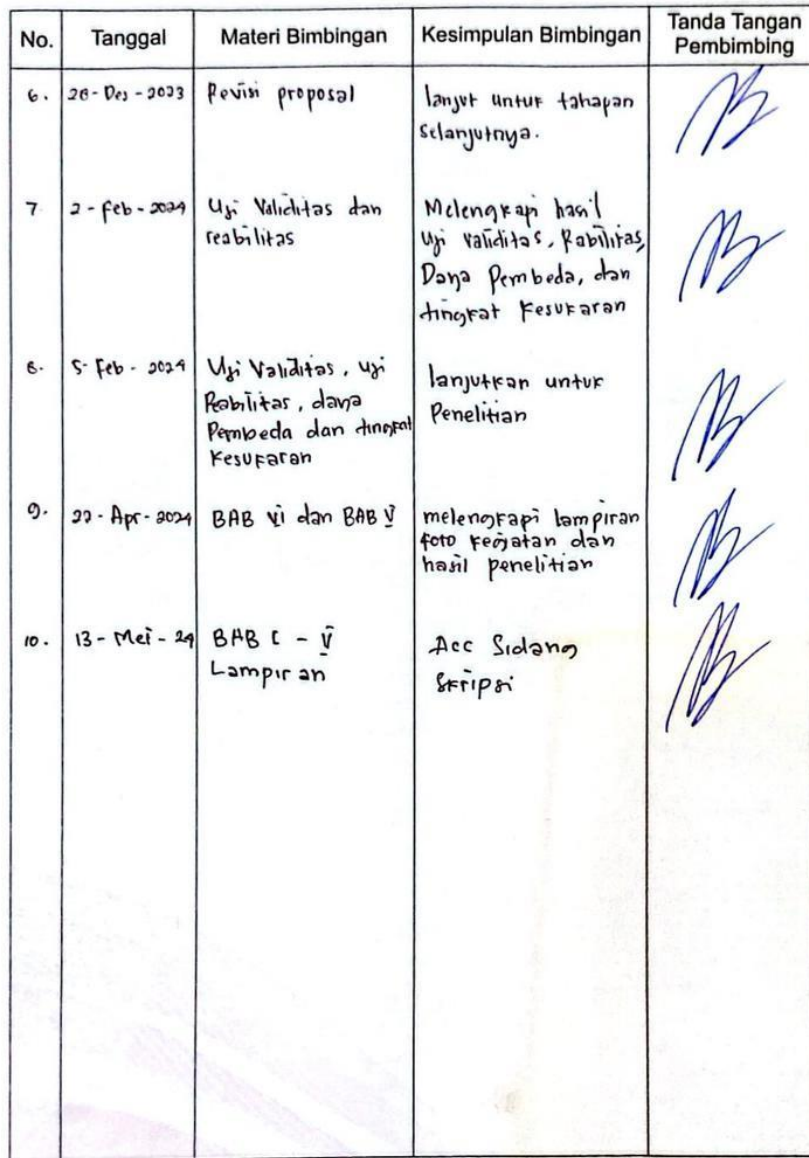 No. Tanggal Materi Bimbingan Kesimpulan Bimbingan Tanda Tangan Pembimbing
6. 26-Des-2023 Revisi proposal lanjut untuk tahapan
selanjutnya.
7 2-feb-2024 Uji Validitas dan Melengkapi hasil
reabilitas Uji validitas, Rabilitas,
Daya Pembeda, dan
tingkat Kesukaran
8. 5-Feb-2024 Uji Validitas, uji lanjutkan untuk
Reabilitas, daya Penelitian
Pembeda dan tingkat
Kesukaran
9. 22-Apr-2024 BAB VI dan BAB V melengkapi lampiran
foto kegiatan dan
hasil penelitian
10. 13-Mei-24 BAB I - V Acc Sidang
Lampiran Skripsi